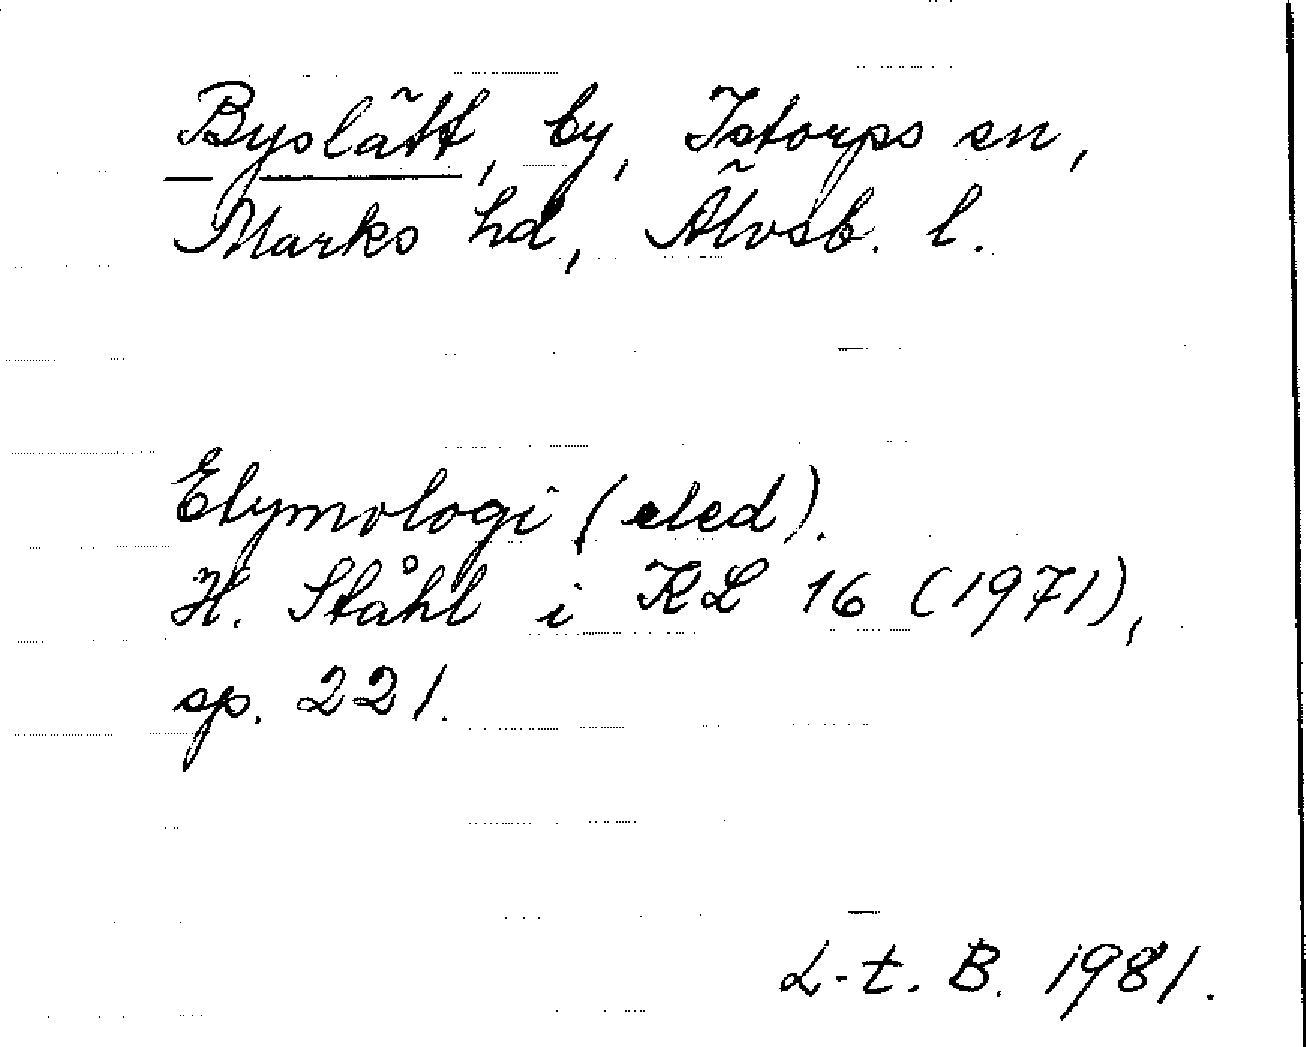 Byslätt, by, Istorps sn,
Marks hd, Älvsb. l.
Etymologi (eled).
H. Ståhl i KL 16 (1971),
sp. 221.
L-t. B. 1981.